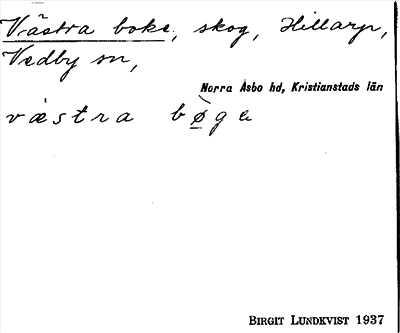 Västra boke, skog, Hillarp,
Vedby sn,
Norra Åsbo hd, Kristianstads län
væstra bøge
BIRGIT LUNDKVIST 1937